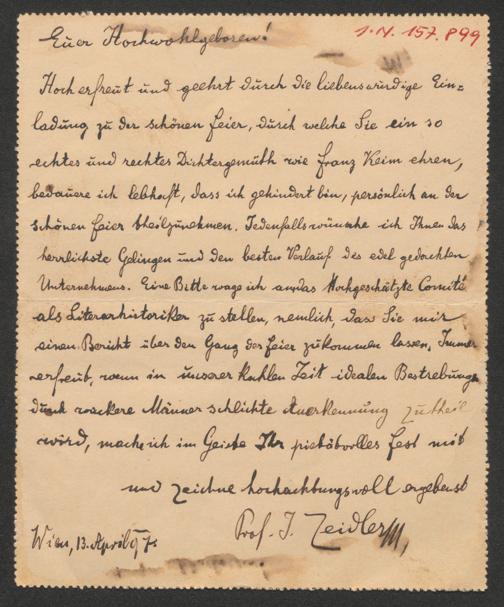 I.N. 157.899
Euer Hochwohlgeboren!
Hocherfreut und geehrt durch die liebenswürdige Ein=
ladung zu der schönen Feier, durch welche Sie ein so
echtes und rechtes Dichtergemüth wie Franz Keim ehren,
bedauere ich lebhaft, dass ich gehindert bin, persönlich an der
schönen Feier theilzunehmen. Jedenfalls wünsche ich Ihnen das
herrlichste Gelingen und den besten Verlauf des edel gedachten
Unternehmens. Eine Bitte wage ich an das Hochgeschätzte Comité
als Literarhistoriker zu stellen, nemlich, dass Sie mir
einen Bericht über den Gang der Feier zukommen lassen. Immer
erfreut, wenn in unserer kahlen Zeit idealen Bestrebungen
durch wackere Männer schlichte Anerkennung zutheil
wird, mache ich im Geiste Ihr pietätvolles Fest mit
und zeichne hochachtungsvoll ergebenst
Prof. J. Zeidler
Wien, 13. April 97.